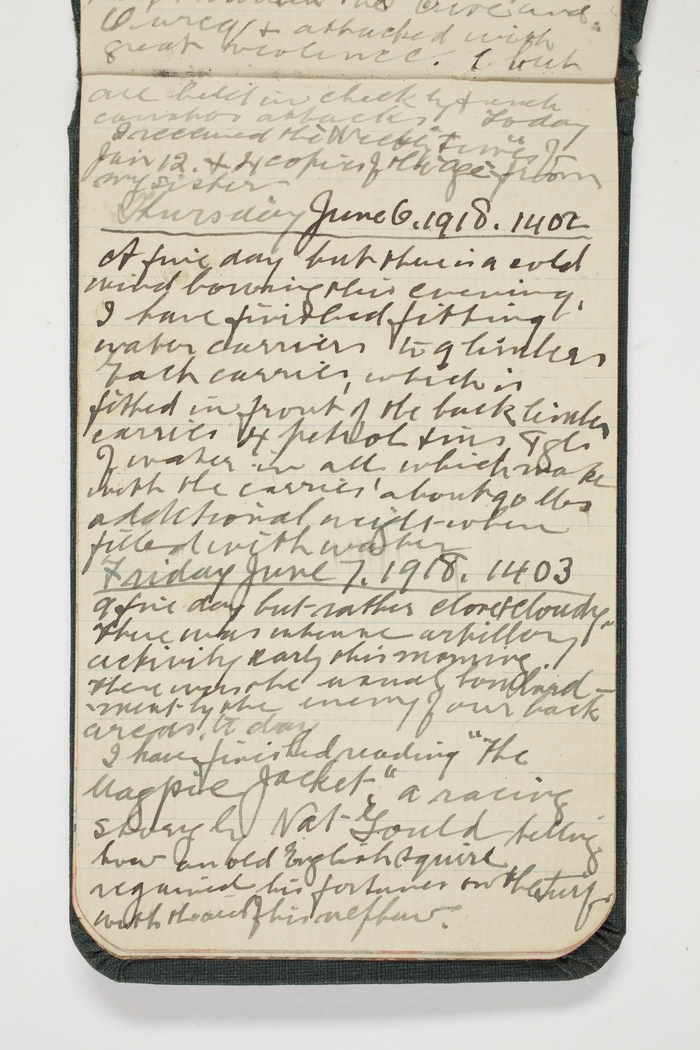 the Oise and
Ourcq & attacked with
great violence. I with
all held in check by French
counter attacks. Today
I received the Weekly Times of
Jan 12. & 4 copies of the Age from
my sister
Thursday June 6. 1918. 1402
A fine day but there is a cold
wind bowing this evening.
I have finished fitting
water carriers to 9 limbers
Each carrier, which is
fitted in front of the back limber
carries 4 petrol tins 8 gls
of water in all which make
with the carrier about 90 lbs
additional weight when
filled with water
Friday June 7. 1918. 1403
A fine day but rather close & cloudy.
There was intense artillery
activity early this morning.
there was the usual bombard-
-ment by the enemy of our back
areas, to day
I have finished reading "The
Magpie Jacket," a racing
story by Nat Gould telling
how an old English squire
regained his fortunes on the turf
with the aid of his nephew.